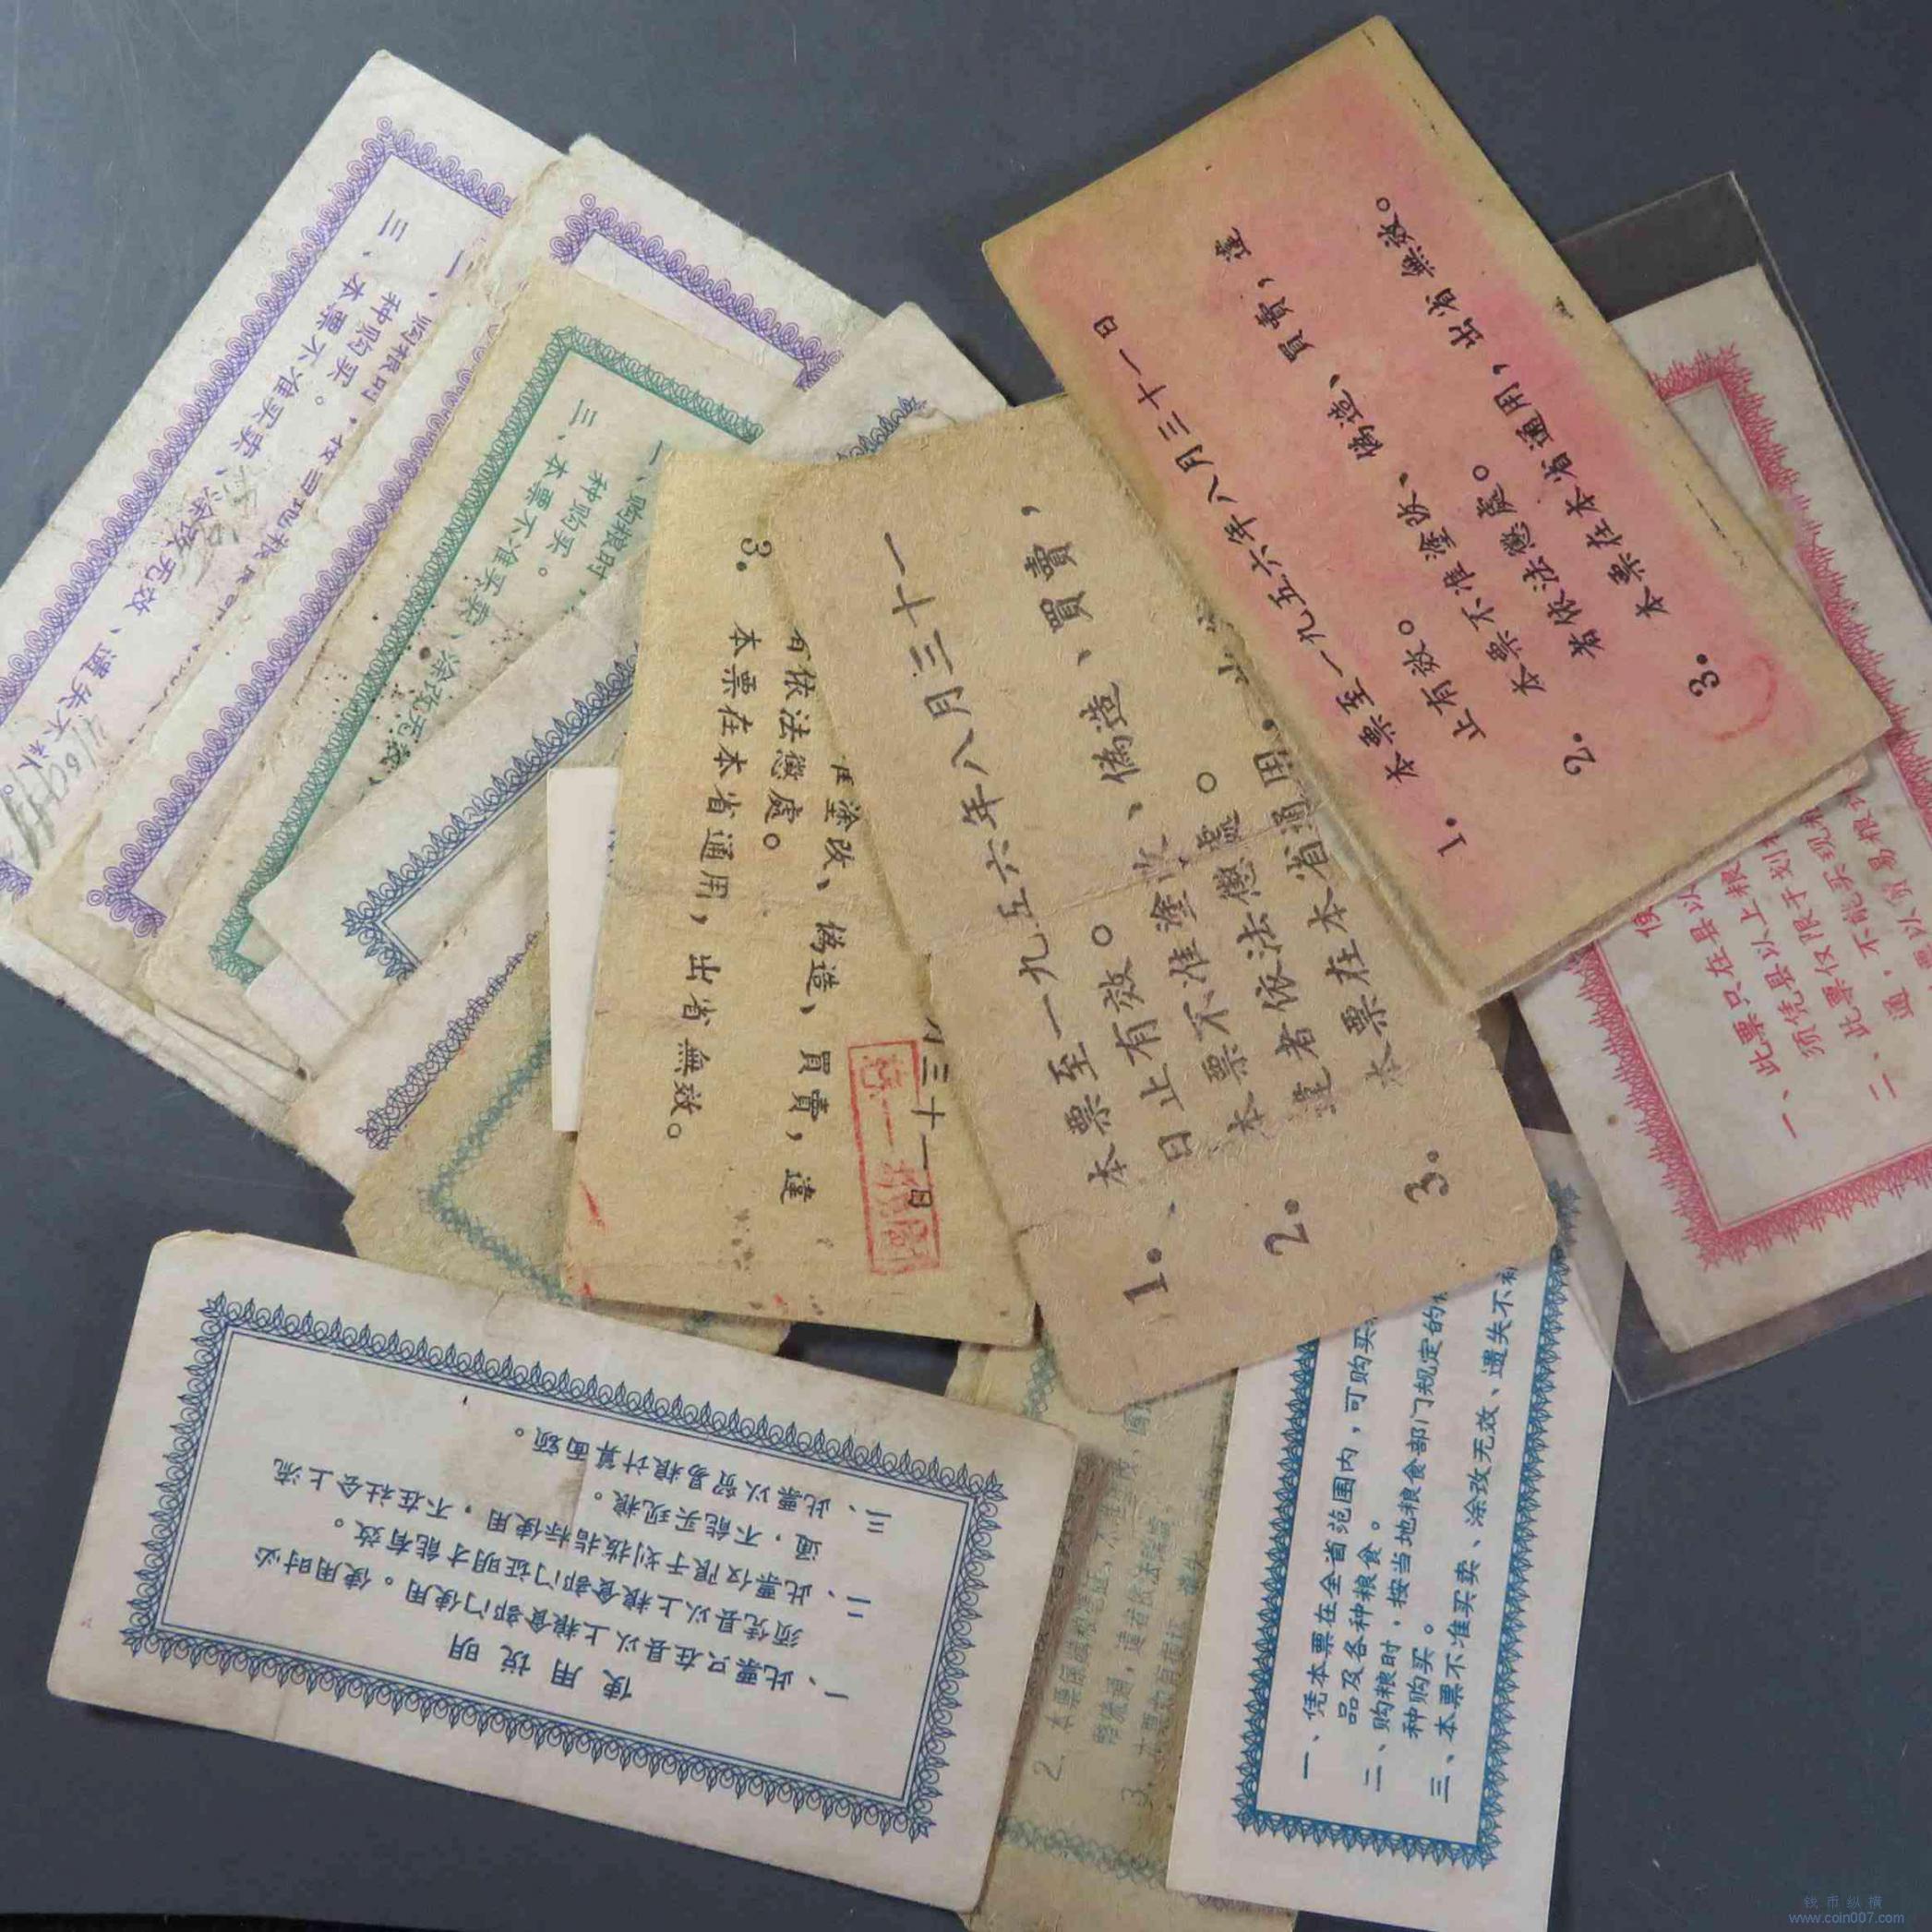 三、本票不准买卖、涂改无效、遗失不补
种购买。
一、购粮时，按当地粮食
三、本票不准买卖、涂改无效
种购买。
一、购粮时
3. 本票在本省通用，出省無效。
者依法懲處。
准塗改、偽造、買賣，違
月三十一日
1. 本票至一九五六年八月三十一
日止有效。
2. 本票不准塗改、偽造、買賣，
違者依法懲處。
3. 本票在本省通用，出
1. 本票至一九五六年八月三十一日
止有效。
2. 本票不准塗改、偽造、買賣，違
者依法懲處。
3. 本票在本省通用，出省無效。
使
一、此票只在县以上粮
须凭县以上粮
二、此票仅限于划拨
通，不能买现粮
以贸易粮
使用说明
一、此票只在县以上粮食部门使用。使用时必
须凭县以上粮食部门证明才能有效。
二、此票仅限于划拨指标使用，不在社会上流
通，不能买现粮。
三、此票以贸易粮计算面额。
2、本票
流通，違者依法
3、本票
一、凭本票在全省范围内，可购买
品及各种粮食。
二、购粮时，按当地粮食部门规定的
种购买。
三、本票不准买卖、涂改无效、遗失不补
钱币纵横
www.coin007.com